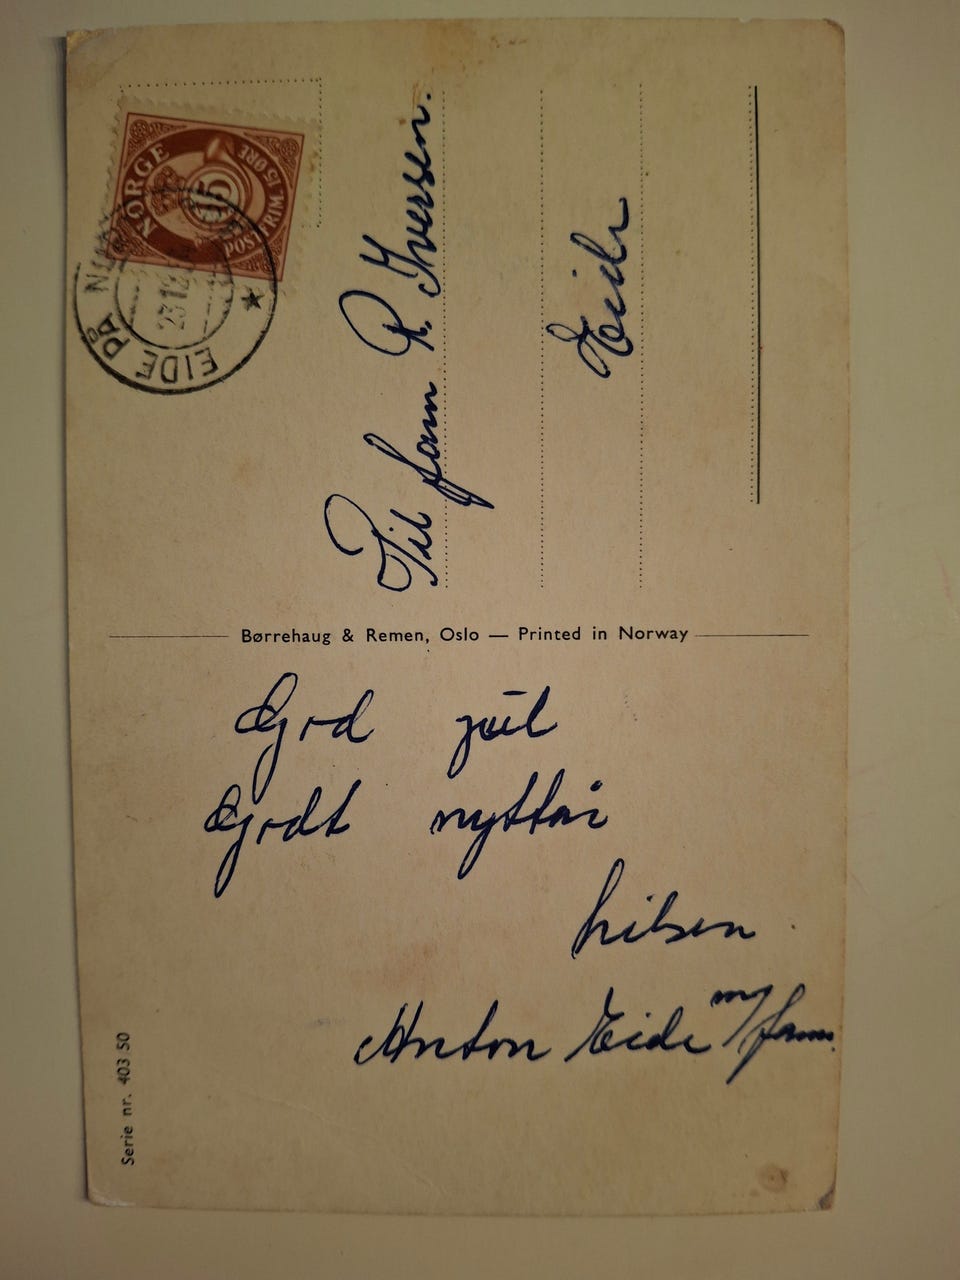 NORGE
15
POSTFRIM. 15 ØRE
EIDE PÅ
23.12
Til fam R. Iversen.
Eide
Børrehaug & Remen, Oslo — Printed in Norway
God jul
Godt nyttår
hilsen
Anton Eide m/fam.
Serie nr. 403 50